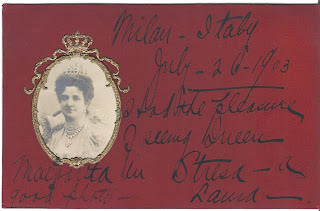 Milan - Italy
July - 26 - 1903
I had the pleasure
of seeing Queen
Margherita in Stresa - a
good photo -
Laura -